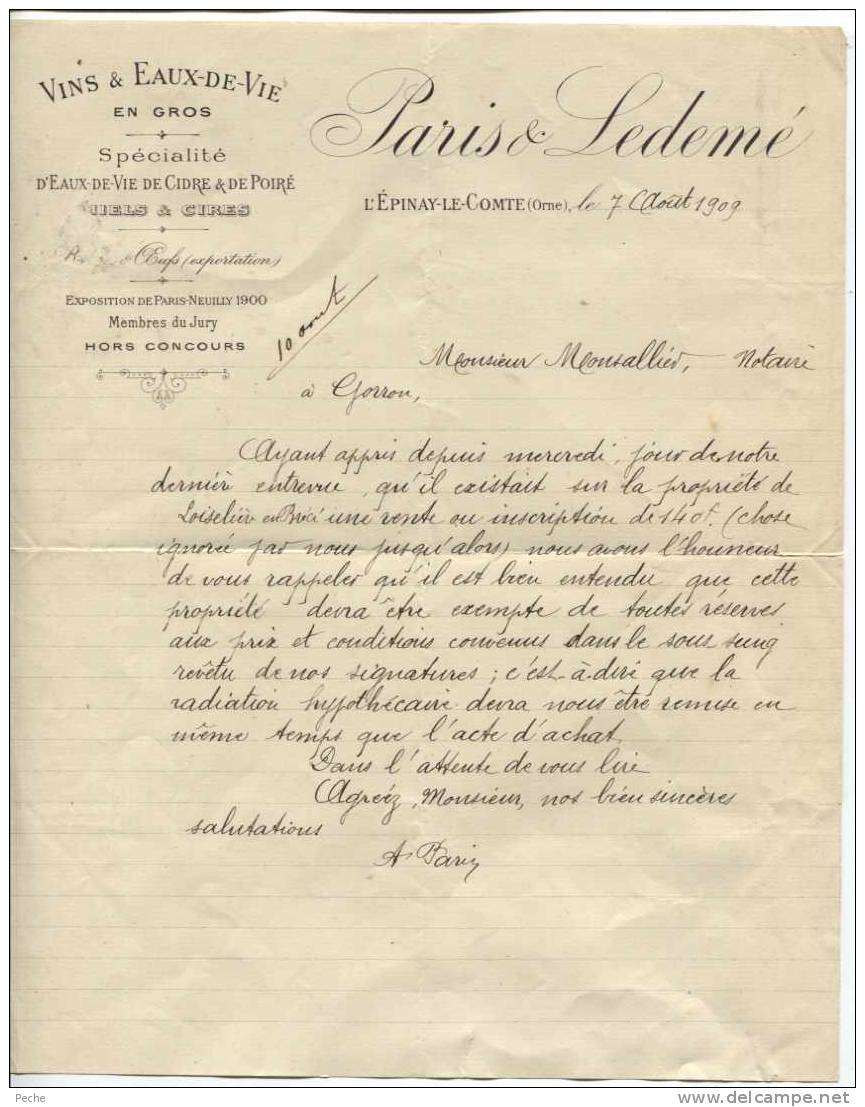 VINS & EAUX-DE-VIE
EN GROS
Spécialité
D'EAUX-DE-VIE DE CIDRE & DE POIRÉ
MIELS & CIRES
Œufs (exportation)
EXPOSITION DE PARIS-NEUILLY 1900
Membres du Jury
HORS CONCOURS
Paris & Ledemé
L'ÉPINAY-LE-COMTE (Orne), le 7 Août 1909
10 aout
Monsieur Monsallier, Notaire
à Gorron,
Ayant appris depuis mercredi, jour de notre
dernière entrevue, qu'il existait sur la propriété de
en une vente ou inscription de 140f. (chose
ignorée par nous jusqu'alors) nous avons l'honneur
de vous rappeler qu'il est bien entendu que cette
propriété devra être exempte de toutes réserves
aux prix et conditions convenus dans le sous seing
revêtu de nos signatures ; c'est-à-dire que la
radiation hypothécaire devra nous être remise en
même temps que l'acte d'achat.
Dans l'attente de vous lire
Agréez, Monsieur, nos bien sincères
salutations
A. Paris
Peche
www.delcampe.net